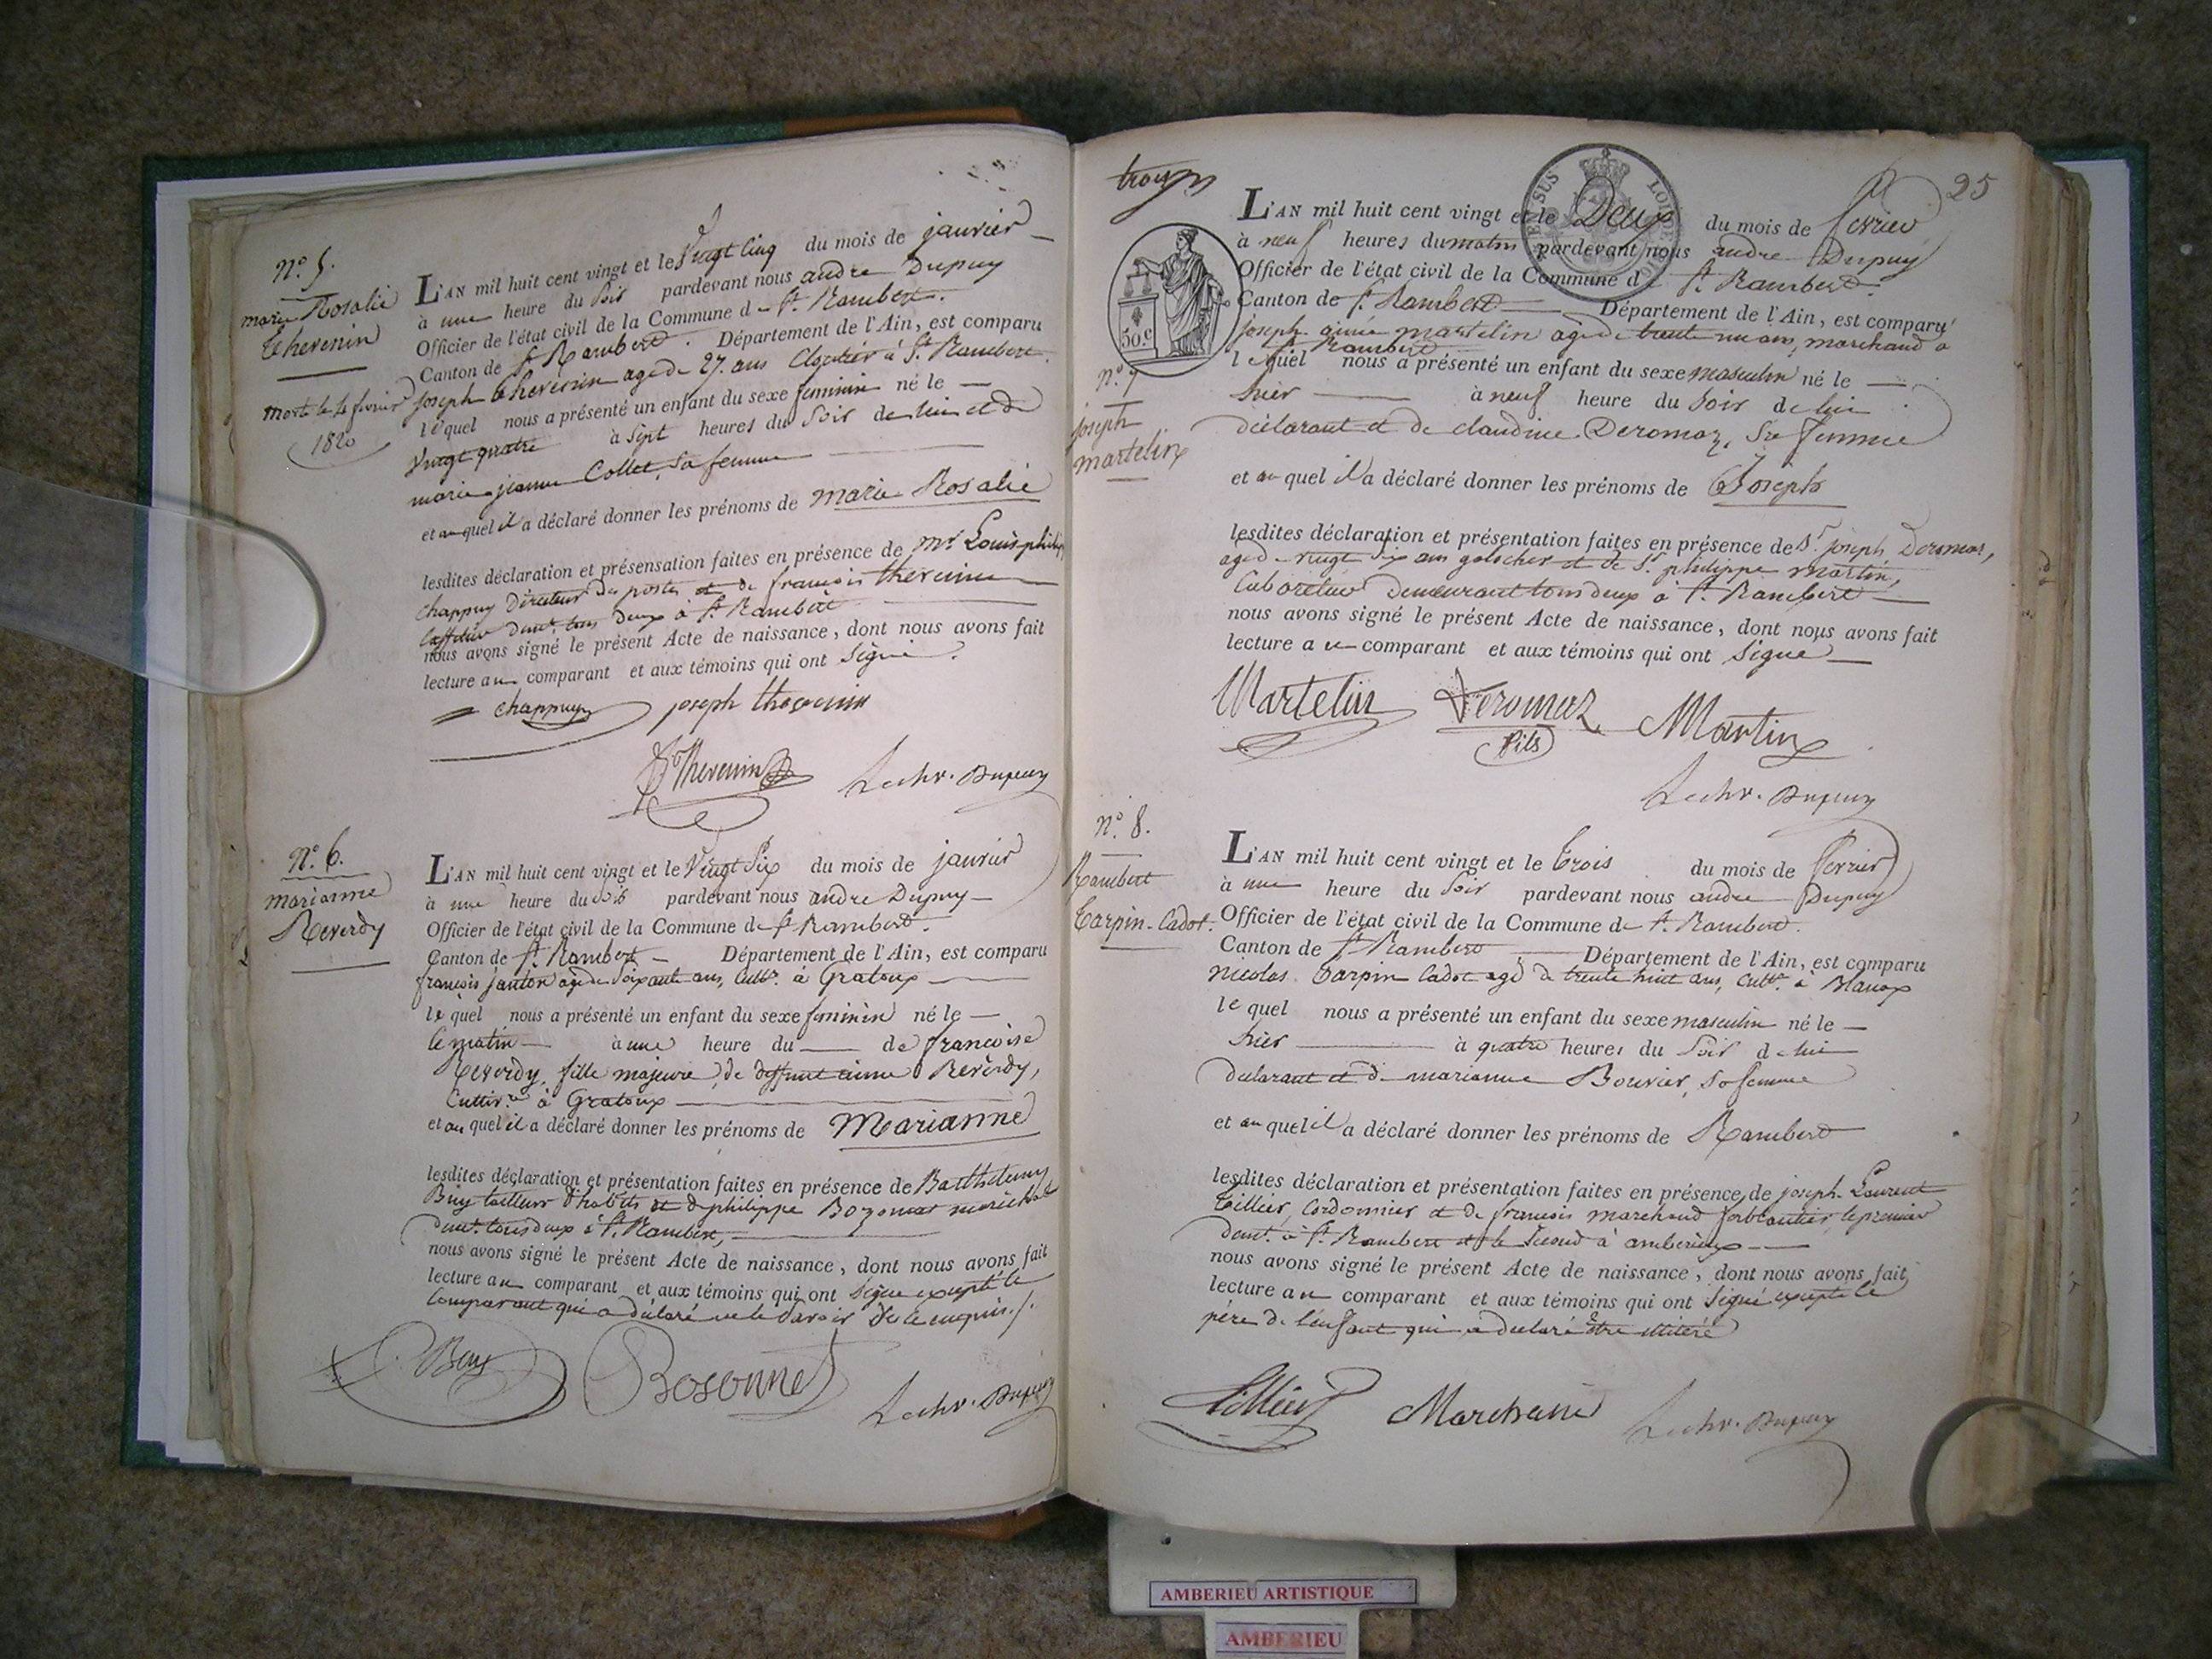 N.° 5.
marie Rosalie
thevenin
morte le 4 fevrier
1820
L'AN mil huit cent vingt et le Vingt Cinq du mois de janvier
à une heure du Soir pardevant nous andre Dupuy
Officier de l'état civil de la Commune de St. Rambert.
Canton de St Rambert. Département de l'Ain, est comparu
joseph thevenin agé de 27. ans Cloutier à St. Rambert.
lequel nous a présenté un enfant du sexe feminin né le
Vingt quatre à Sept heures du Soir de lui et de
marie jeanne Collet, sa femme
et auquel il a déclaré donner les prénoms de marie Rosalie
lesdites déclaration et présensation faites en présence de Mr. Louis philip
chappuy Directeur des postes et de françois thevenin
demt. tous deux à St. Rambert
nous avons signé le présent Acte de naissance, dont nous avons fait
lecture au comparant et aux témoins qui ont Signé.
chappuy joseph thevenin
Thevenin Dupuy
N.° 6.
marianne
Reverdy
L'AN mil huit cent vingt et le Vingt Six du mois de janvier
à une heure du Soir pardevant nous andre Dupuy
Officier de l'état civil de la Commune de St Rambert.
Canton de St. Rambert Département de l'Ain, est comparu
françois janton agé de Soixante ans, Cultr. à Gratoux
lequel nous a présenté un enfant du sexe feminin né le
le matin à une heure du de francoise
Reverdy, fille majeure, de deffunt aimé Reverdy,
Cultiv.re à Gratoux
et au quel il a déclaré donner les prénoms de Marianne
lesdites déclaration et présentation faites en présence de Barthelemy
Buy tailleur d'habits et de philippe Bozonnet marechal
demt. tous deux à St. Rambert,
nous avons signé le présent Acte de naissance, dont nous avons fait
lecture au comparant et aux témoins qui ont Signé excepté le
Comparant qui a déclaré ne le Savoir de ce enquis./.
Buy Bosonnet Dupuy
25
50.C
EN SUS
L'AN mil huit cent vingt et le Deux du mois de fevrier
à neuf heures du matin pardevant nous andre Dupuy
Officier de l'état civil de la Commune d St. Rambert.
Canton de St. Rambert Département de l'Ain, est comparu
joseph aimé martelin agé de trente un ans, marchand à
St Rambert
lequel nous a présenté un enfant du sexe masculin né le
hier à neuf heure du Soir de lui
déclarant et de claudine Deromaz, Sa femme
et au quel il a déclaré donner les prénoms de Joseph
N.° 7
joseph
martelin
lesdites déclaration et présentation faites en présence de Sr. joseph Deromas,
agé de vingt Six ans galocher et de Sr. philippe martin,
Cabaretier demeurant tous deux à St. Rambert
nous avons signé le présent Acte de naissance, dont nous avons fait
lecture a u comparant et aux témoins qui ont Signé
Martelin Deromaz Martin
fils
Dupuy
N.° 8.
Rambert
Tarpin-Cadot.
L'AN mil huit cent vingt et le trois du mois de fevrier
à une heure du Soir pardevant nous andre Dupuy
Officier de l'état civil de la Commune de St. Rambert.
Canton de St Rambert Département de l'Ain, est comparu
nicolas Tarpin Cadot agé de trente huit ans, Cultr. à Blanax
lequel nous a présenté un enfant du sexe masculin né le
hier à quatre heures du Soir de lui
déclarant et de marianne Bouvier, sa femme
et au quel il a déclaré donner les prénoms de Rambert
lesdites déclaration et présentation faites en présence de joseph-Laurent
Tillier, Cordonnier et de françois marchand ferblantier, le premier
demt. à St. Rambert et le Second à amberieux
nous avons signé le présent Acte de naissance, dont nous avons fait
lecture au comparant et aux témoins qui ont Signé excepté le
père de l'enfant qui a déclaré être illitéré
Tillier Marchand Dupuy
AMBERIEU ARTISTIQUE
AMBERIEU